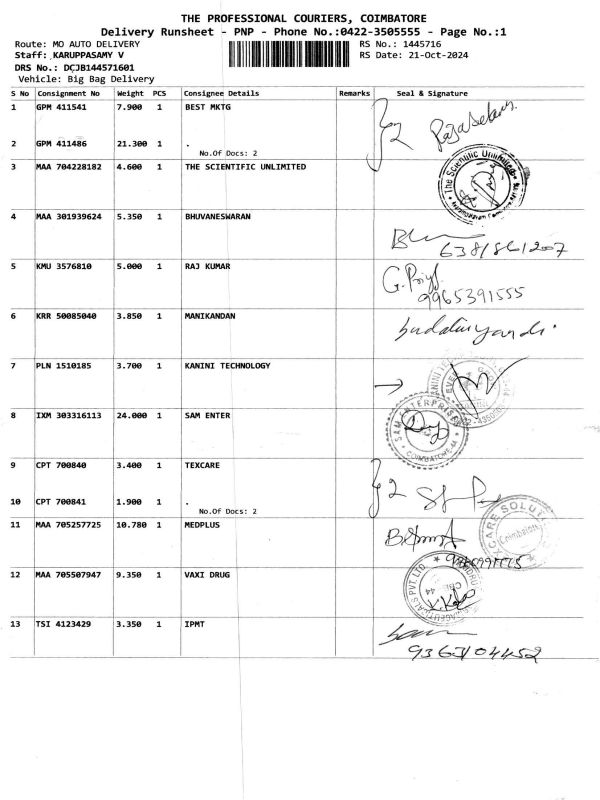 THE PROFESSIONAL COURIERS, COIMBATORE
Delivery Runsheet - PNP - Phone No.:0422-3505555 - Page No.:1
Route: MO AUTO DELIVERY RS No.: 1445716
Staff: KARUPPASAMY V RS Date: 21-Oct-2024
DRS No.: DCJB144571601
Vehicle: Big Bag Delivery
S No Consignment No Weight PCS Consignee Details Remarks Seal & Signature
1 GPM 411541 7.900 1 BEST MKTG
2 GPM 411486 21.300 1 .
No.Of Docs: 2
3 MAA 704228182 4.600 1 THE SCIENTIFIC UNLIMITED
The Scientific Unlimited
4 MAA 301939624 5.350 1 BHUVANESWARAN
5 KMU 3576810 5.000 1 RAJ KUMAR
G.Priya
9965391555
6 KRR 50085040 3.850 1 MANIKANDAN
7 PLN 1510185 3.700 1 KANINI TECHNOLOGY
8 IXM 303316113 24.000 1 SAM ENTER
SAM ENTERPRISES
COIMBATORE-44
9 CPT 700840 3.400 1 TEXCARE
10 CPT 700841 1.900 1 .
No.Of Docs: 2
11 MAA 705257725 10.780 1 MEDPLUS
Coimbatore
12 MAA 705507947 9.350 1 VAXI DRUG
13 TSI 4123429 3.350 1 IPMT
9363104452